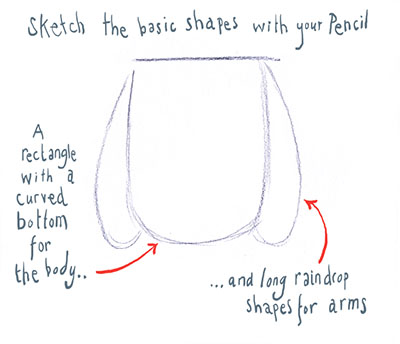 Sketch the basic shapes with your Pencil
A
rectangle
with a
curved
bottom
for
the body..
...and long raindrop
shapes for arms